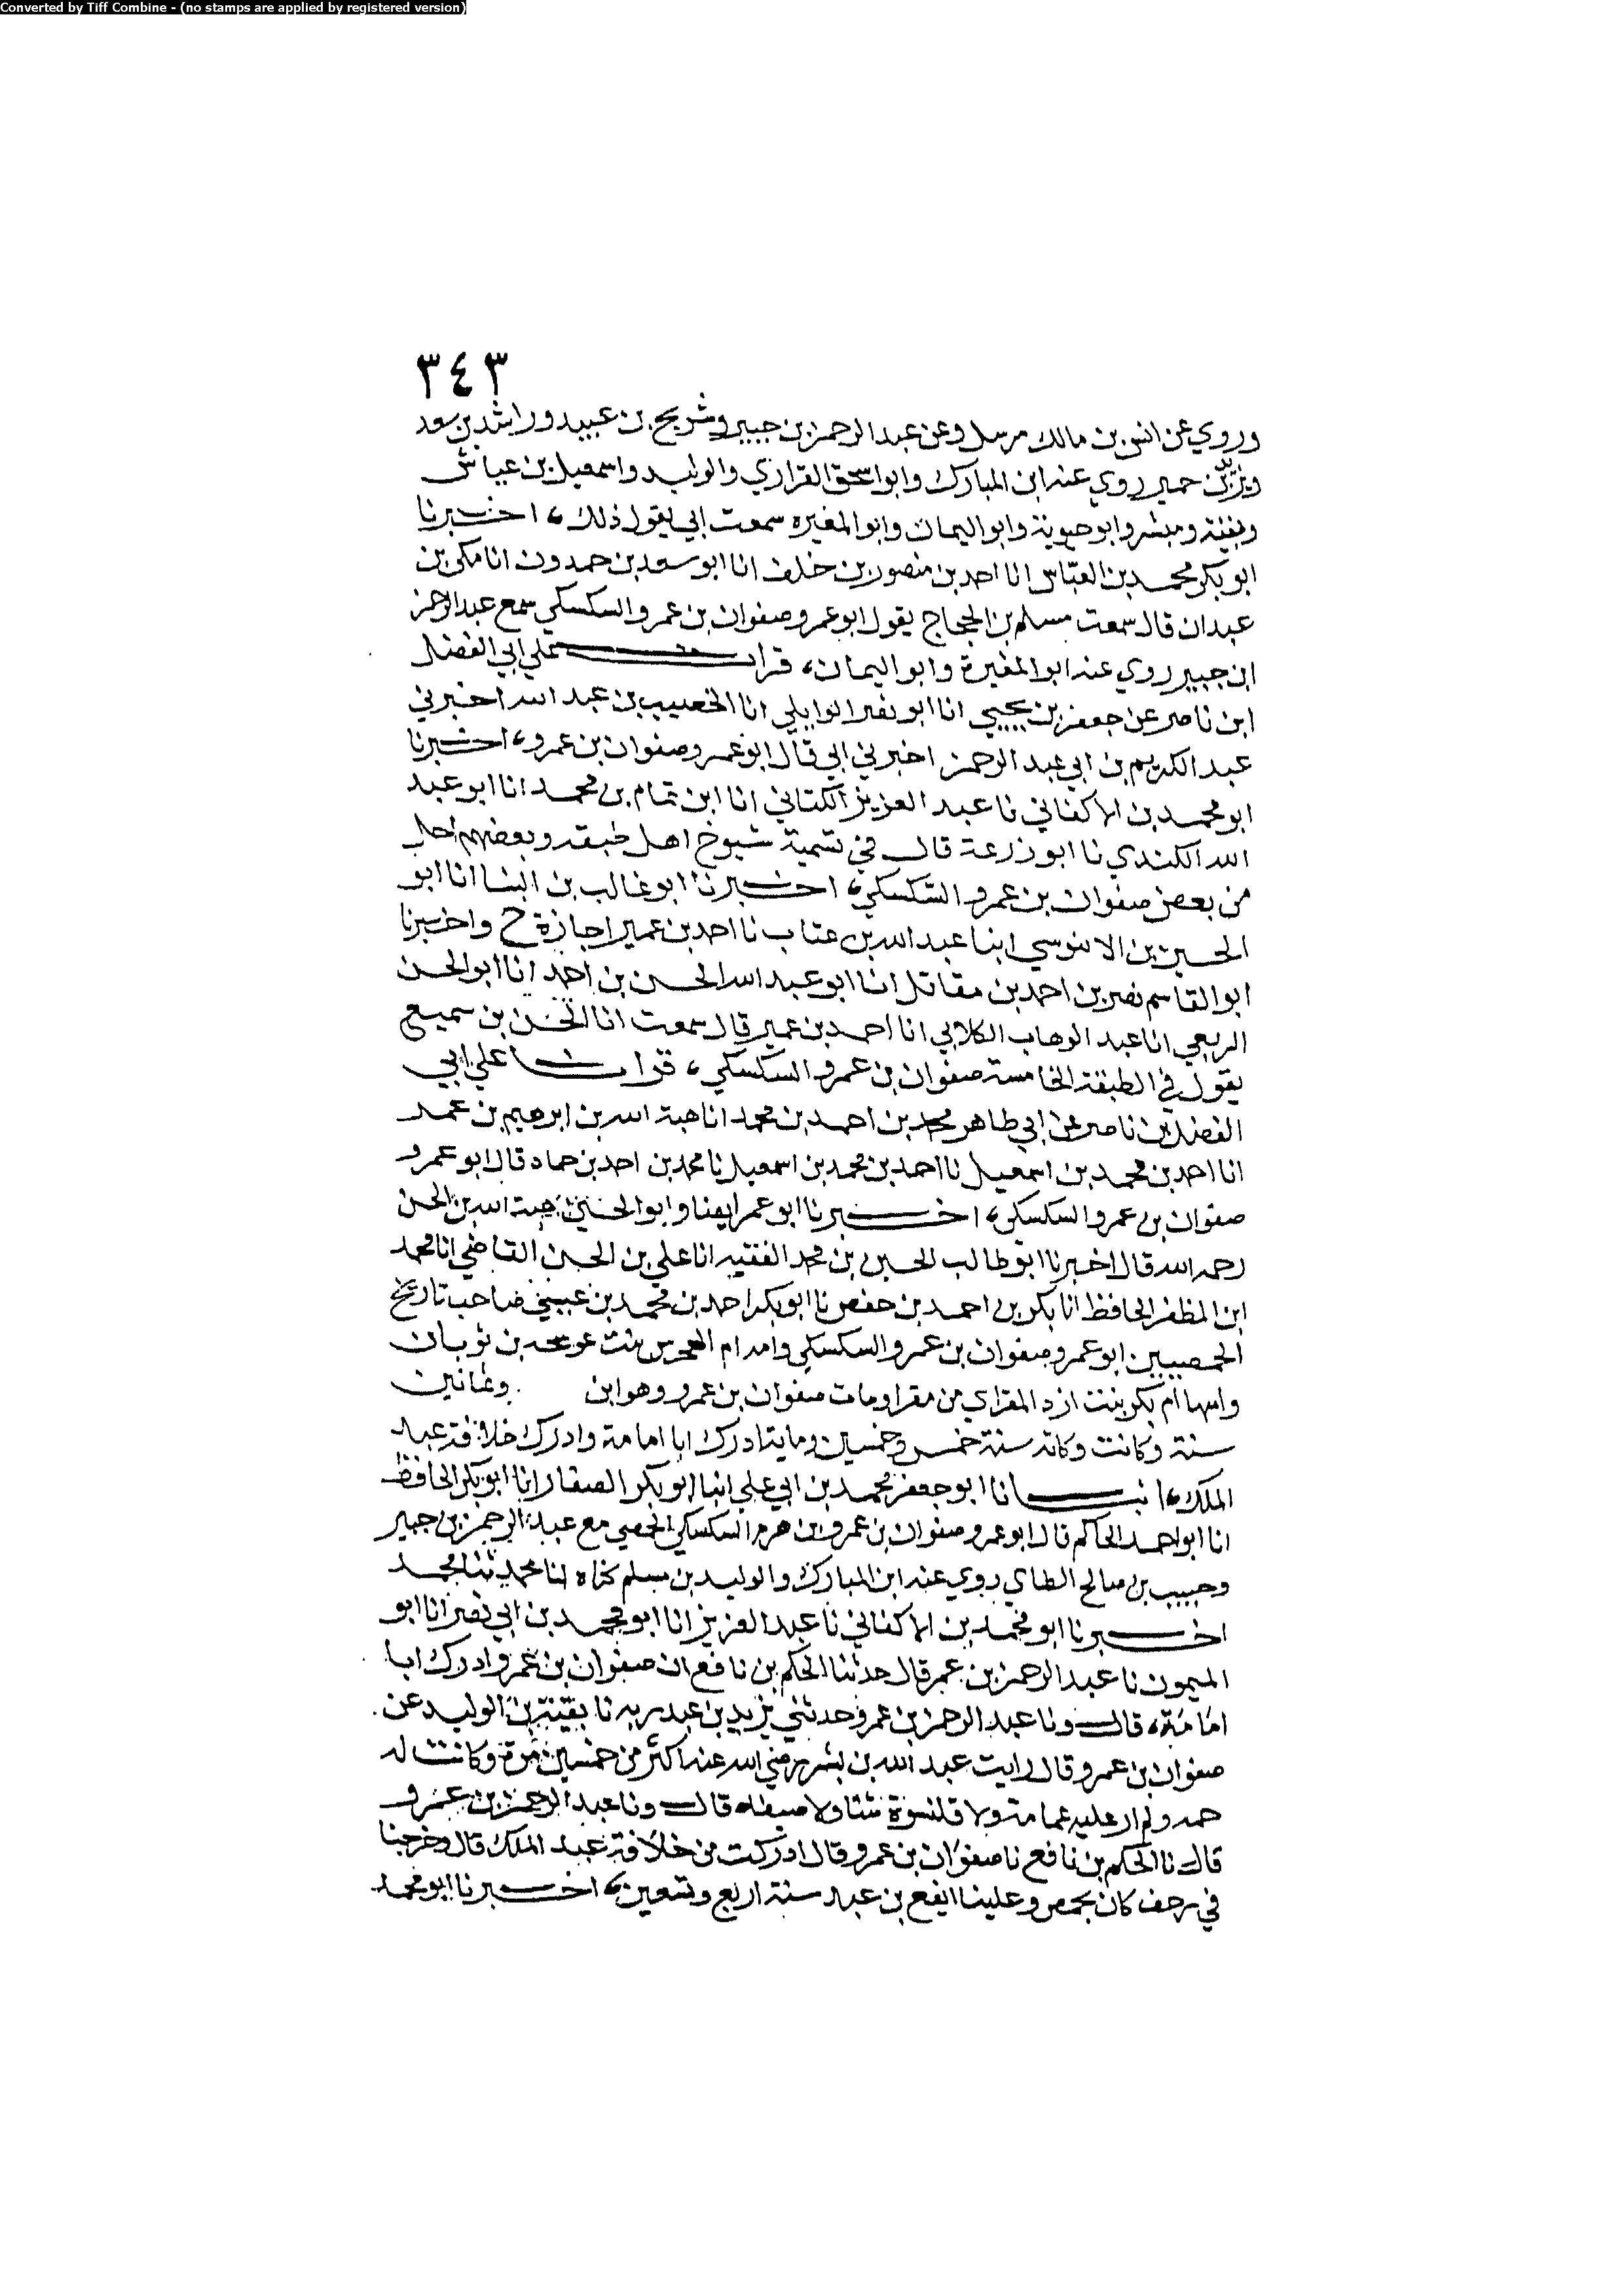 Converted by Tiff Combine - (no stamps are applied by registered version)
٣٤٣
وروي عن انس بن مالك مرسل وعن عبد الرحمن بن جبير وشريح بن عبيد وراشد بن سعد
ويزيد بن حمير روي عنه ابن المبارك وابو اسحق الفزازي والوليد واسمعيل بن عياش
وبقية ومبشر وابو حيوية وابو اليمان وابو المغيره سمعت ابي يقول ذلك، اخبرنا
ابو بكر محمد بن العباس انا احمد بن منصور بن خلف انا ابو سعد بن حمدون انا مكي بن
عبدان قال سمعت مسلم بن الحجاج يقول ابو عمرو صفوان بن عمرو السكسكي سمع عبد الرحمن
ابن جبير روي عنه ابو المغيرة وابو اليمان، قرات علي ابي الفضل
ابن ناصر عن جعفر بن يحيي انا ابو نصر الوايلي انا الخصيب بن عبد الله اخبرني
عبد الكريم بن ابي عبد الرحمن اخبرني ابي قال ابو عمرو صفوان بن عمرو، اخبرنا
ابو محمد بن الاكفاني نا عبد العزيز الكتاني انا ابن تمام بن محمد انا ابو عبد
الله الكندي نا ابو زرعة قال في تسمية شيوخ اهل طبقه وبعضهم اجل
من بعض صفوان بن عمرو السكسكي، اخبرنا ابو غالب بن البنا انا ابو
الحسين بن الابنوسي ابنا عبد الله بن عتاب نا احمد بن عمير اجازة ح واخبرنا
ابو القاسم نصر بن احمد بن مقاتل انا ابو عبد الله الحسن بن احمد انا ابو الحسن
الربعي انا عبد الوهاب الكلابي انا احمد بن عمير قال سمعت انا الحسن بن سميع
يقول في الطبقة الخامسة صفوان بن عمرو السكسكي، قرات علي ابي
الفضل بن ناصر عن ابي طاهر محمد بن احمد بن محمد انا هبة الله بن ابرهيم بن عمر
انا احمد بن محمد بن اسمعيل نا احمد بن محمد بن اسمعيل نا محمد بن احمد بن حماد قال ابو عمرو
صفوان بن عمرو السكسكي، اخبرنا ابو عمر ايضا وابو الحسن هبة الله بن الحسن
رحمه الله قال اخبرنا ابو طالب الحسين بن محمد الفقيه انا علي بن الحسن القاضي انا محمد
ابن المظفر الحافظ انا بكر بن احمد بن حفص نا ابو بكر احمد بن محمد بن عيسي صاحب تاريخ
الحمصيين ابو عمرو صفوان بن عمرو السكسكي وامه ام بنت بن ثوبان
واسها ام بكر بنت ازد المقراي من مقرا ومات صفوان بن عمرو وهو ابن وثمانين
سنة وكانت سنة خمس وخمسين وماية ادرك ابا امامة وادرك خلافة عبد
الملك، انبانا ابو جعفر محمد بن ابي علي ابنا ابو بكر الصفار انا ابو بكر الحافظ
انا ابو احمد الحاكم قال ابو عمرو صفوان بن عمرو بن هرم السكسكي الحمصي مع عبد الرحمن بن جبير
وحبيب بن صالح الطاي روي عنه ابن المبارك والوليد بن مسلم كناه لنا محمد ثنا محمد
اخبرنا ابو محمد بن الاكفاني نا عبد العزيز انا ابو محمد بن ابي نصر انا ابو
الميمون نا عبد الرحمن بن عمر قال حدثنا الحكم بن نافع ان صفوان بن عمرو ادرك ابا
امامة، قال ونا عبد الرحمن بن عمرو حدثني يزيد بن عبد ربه نا بقية بن الوليد عن
صفوان بن عمرو قال رايت عبد الله بن بشر رضي الله عنه اكثر من خمسين مرة وكانت له
جمه ولم ار عليه عمامة ولا قلنسوة شتا ولا صيفا قال ونا عبد الرحمن بن عمرو
قال نا الحكم بن نافع نا صفوان بن عمرو قال ادركت من خلافة عبد الملك قال وخرجنا
في رجف كان بحمص وعلينا ايفع بن عبد سنة اربع وتسعين، اخبرنا ابو محمد